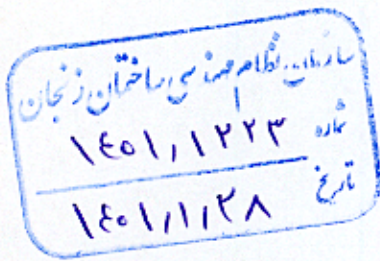 سازمان نظام مهندسی ساختمان زنجان
شماره ۱۴۰۱/۱۲۲۳
تاریخ ۱۴۰۱/۱/۲۸